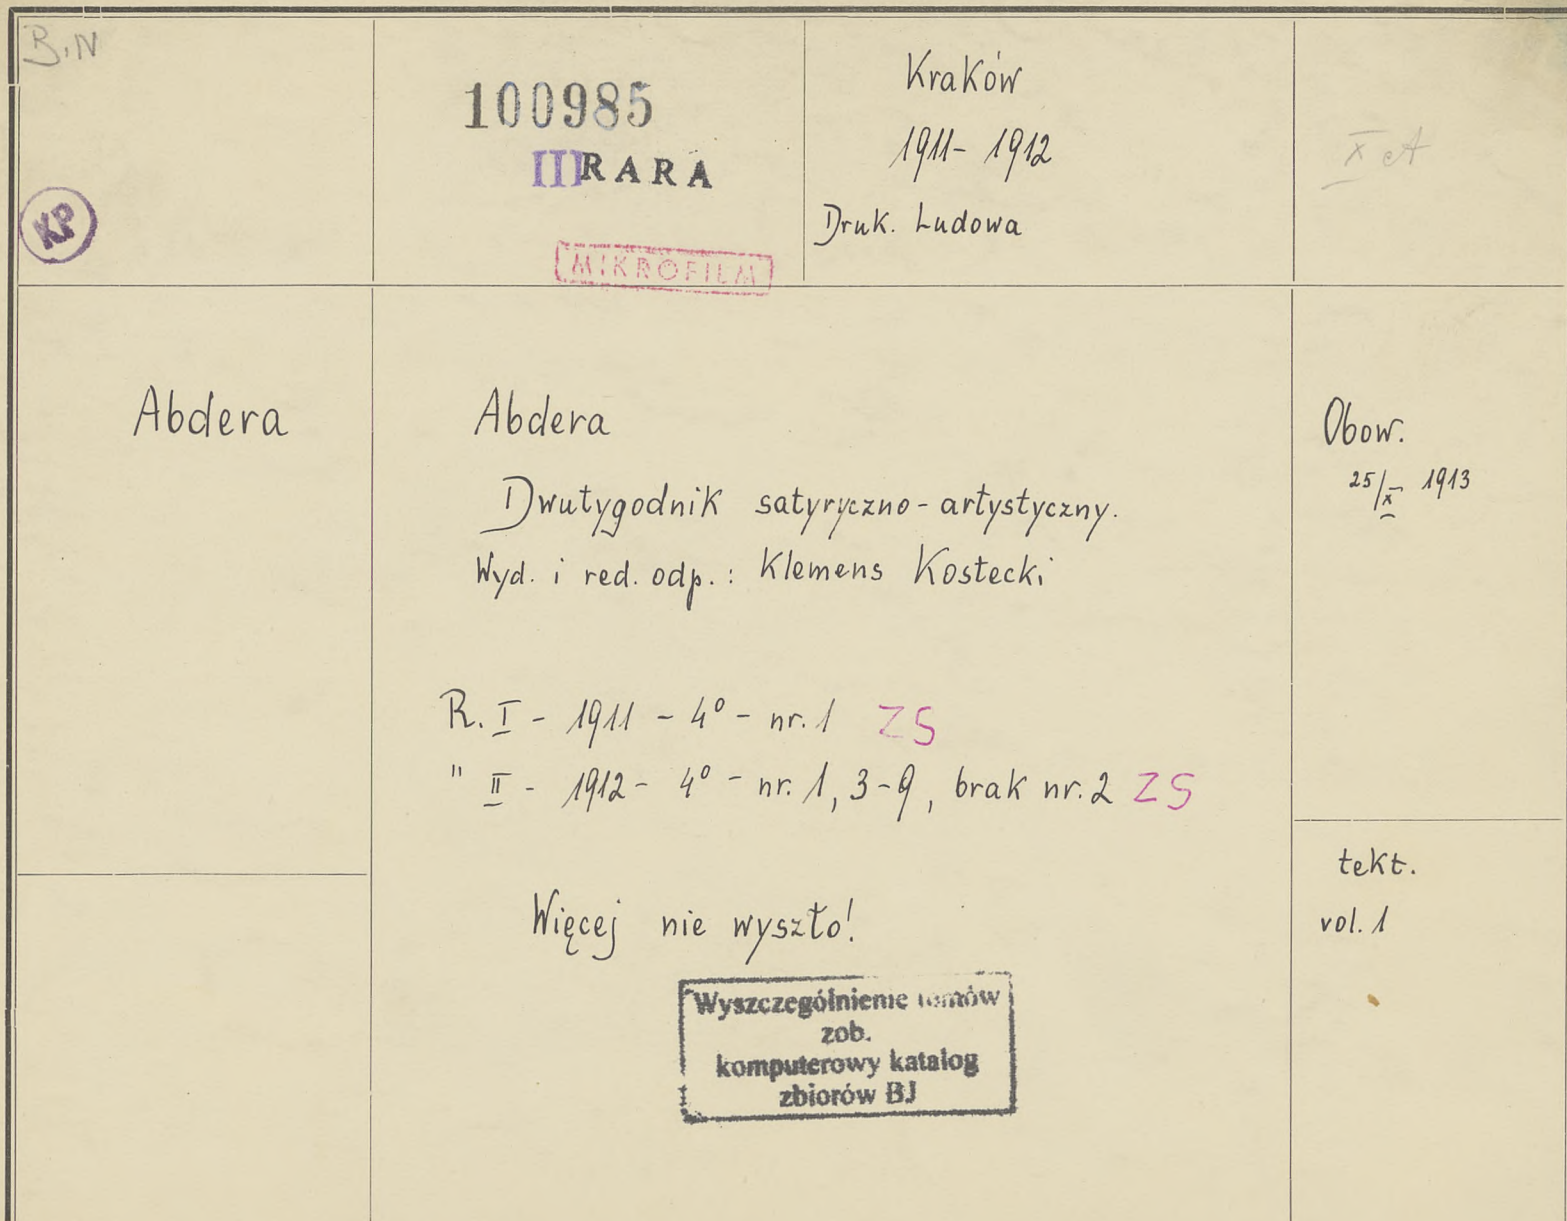 B.N
KP
100985
III RARA
MIKROFILM
Kraków
1911-1912
Druk. Ludowa
X A
Abdera
Abdera
Dwutygodnik satyryczno-artystyczny.
Wyd. i red. odp.: Klemens Kostecki
R. I - 1911 - 4° - nr. 1 ZS
" II - 1912 - 4° - nr. 1, 3-9, brak nr. 2 ZS
Więcej nie wyszło!
Wyszczególnienie tomów
zob.
komputerowy katalog
zbiorów BJ
Obow.
25/X 1913
tekt.
vol. 1